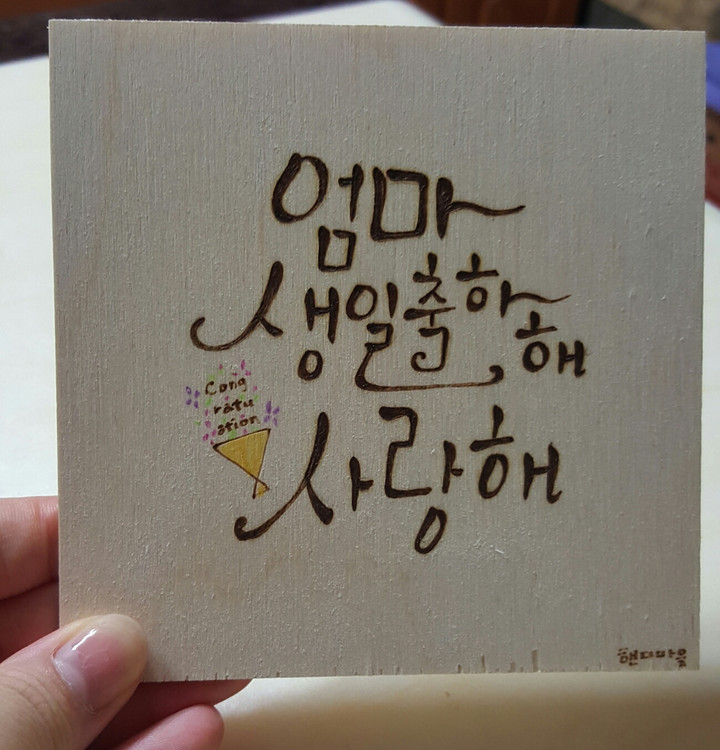 엄마
생일축하해
Cong
ratu
ation
사랑해
핸디마을